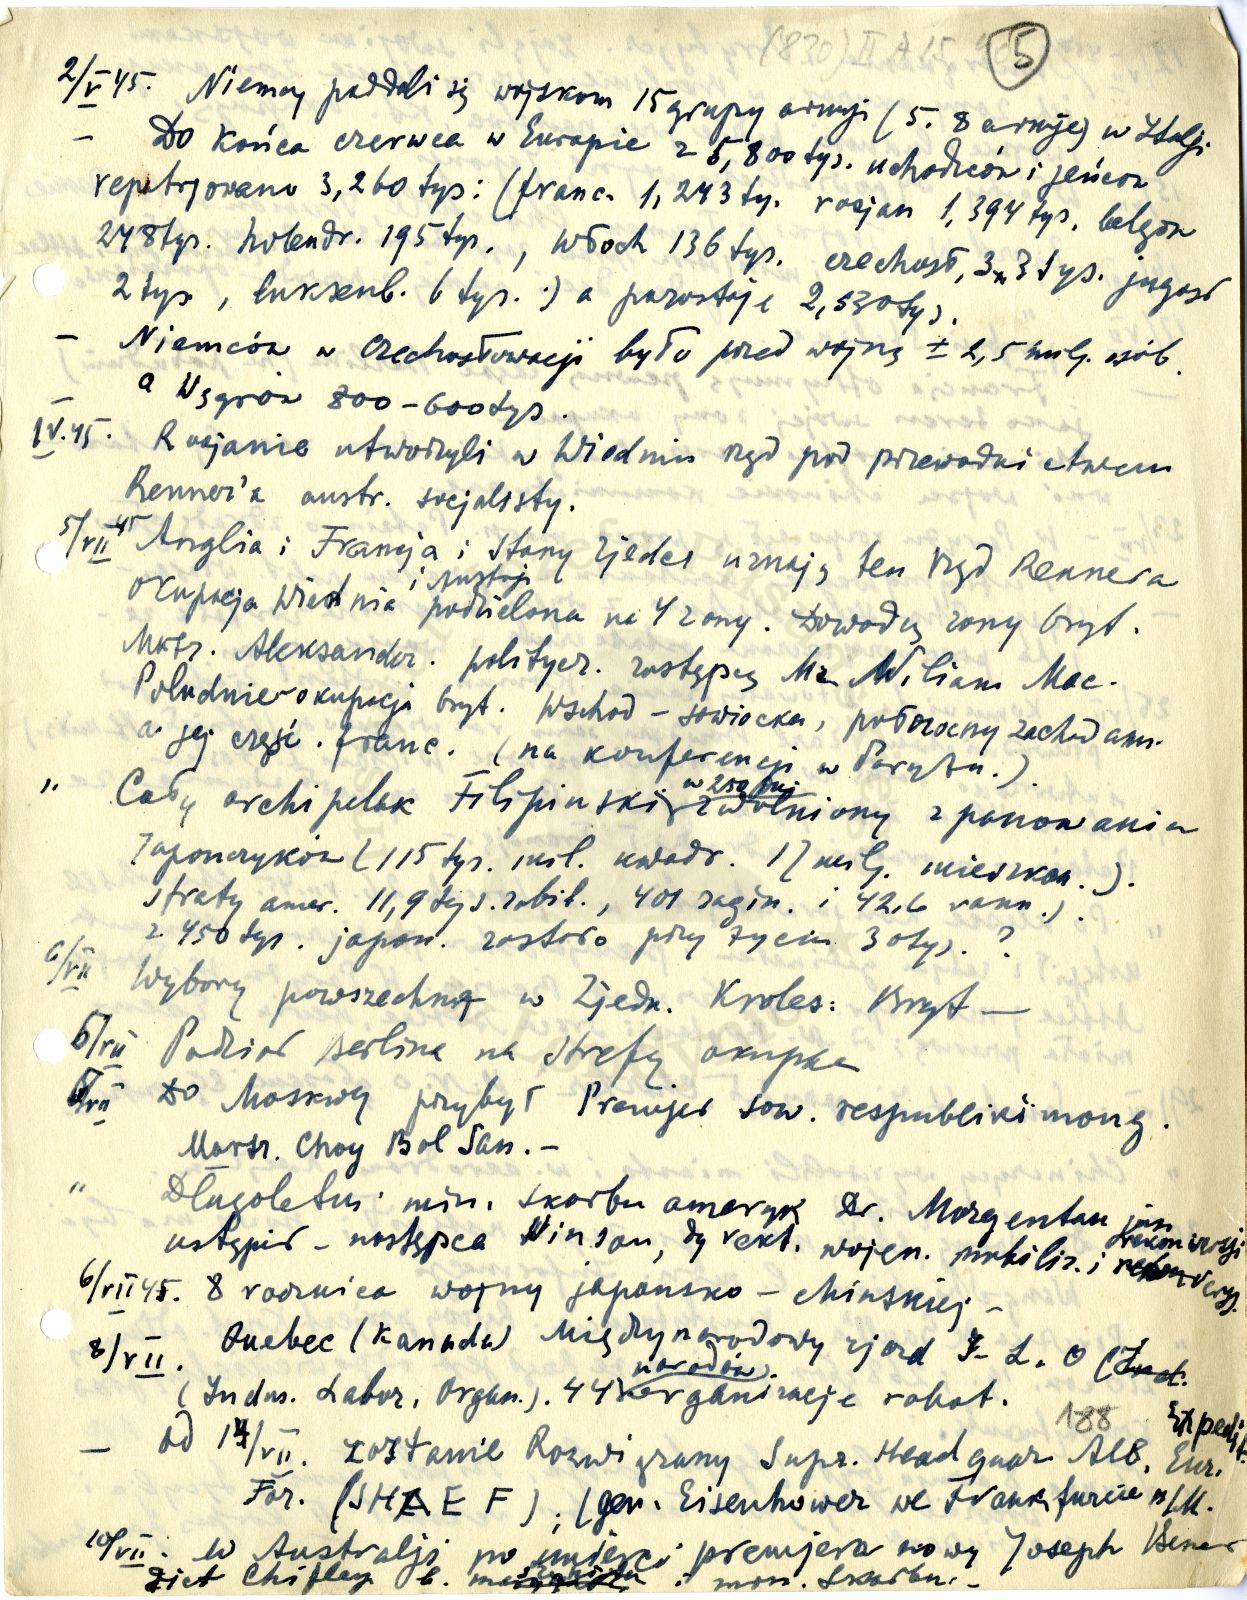 (830) II A 15 5
2/V 45. Niemcy poddali się wojskom 15 grupy armji (5. 8 armję) w Italji
— Do końca czerwca w Europie z 5,800 tys. uchodźców i jeńców
repatrjowano 3,260 tys: (franc. 1,243 ty. rosjan 1,394 tys. belgów
248 tys. holendr. 195 tys., włoch 136 tys. czechosł, 33 tys. jugosł
2 tys, luksenb. 6 tys.) a pozostaje 2,530 tys.
— Niemców w Czechosłowacji było przed wojną ± 2,5 milj. osób.
a Węgrów 800-600 tys.
IV.45. Rosjanie utworzyli w Wiedniu rząd pod przewodnictwem
Renner'a austr. socjalisty.
5/VII 45 Anglia i Francja i Stany Zjedn uznają ten rząd Rennera
i Austrji
Okupacja Wiednia podzielona na 4 zony. Dowódcą zony bryt.
Mksr. Aleksander. polityczn. zastępcą Mr. Wiliam Mac.
Południe - okupacja bryt. Wschód - sowiecka, północny zachód am.
a jej część. franc. (na konferencji w Paryżu.)
" Cały archipelak Filipinski w 250 dni zwolniony z panowania
Japończyków (115 tys. mil. kwadr. 17 milj. mieszkan.).
straty amer. 11,9 tys. zabit., 401 zagin. i 42,6 rann.).
z 450 tys. japon. zostało przy życiu 30 tys. ?
6/VII Wybory powszechne w Zjedn. Króles: Bryt —
6/VII Podział Berlina na strefy okupac
6/VII Do Moskwy przybył Premjer sow. respubliki mong.
Marsz. Choy Bol San. —
" Długoletni min. skarbu ameryk Dr. Morgentau jun
ustąpił - następca Winson, dyrekt. wojen. mobiliz. i rekonwersji
6/VII 45. 8 rocznica wojny japońsko - chińskiej -
8/VII. Quebec (Kanada) Międzynarodowy zjazd I. L. O
(Indus. Labor. Organ.). 44 narodów organizacje robot.
188
— od 14/VII. zostanie Rozwiązany Supr. Headquar All. Expedit. Eur.
For. (SHAEF); (gen. Eisenhower we Frankfurcie n/M.
10/VII. w Australji po śmierci premjera nowy Joseph Bene
dict Chifley b. maszynista i min. skarbu. -